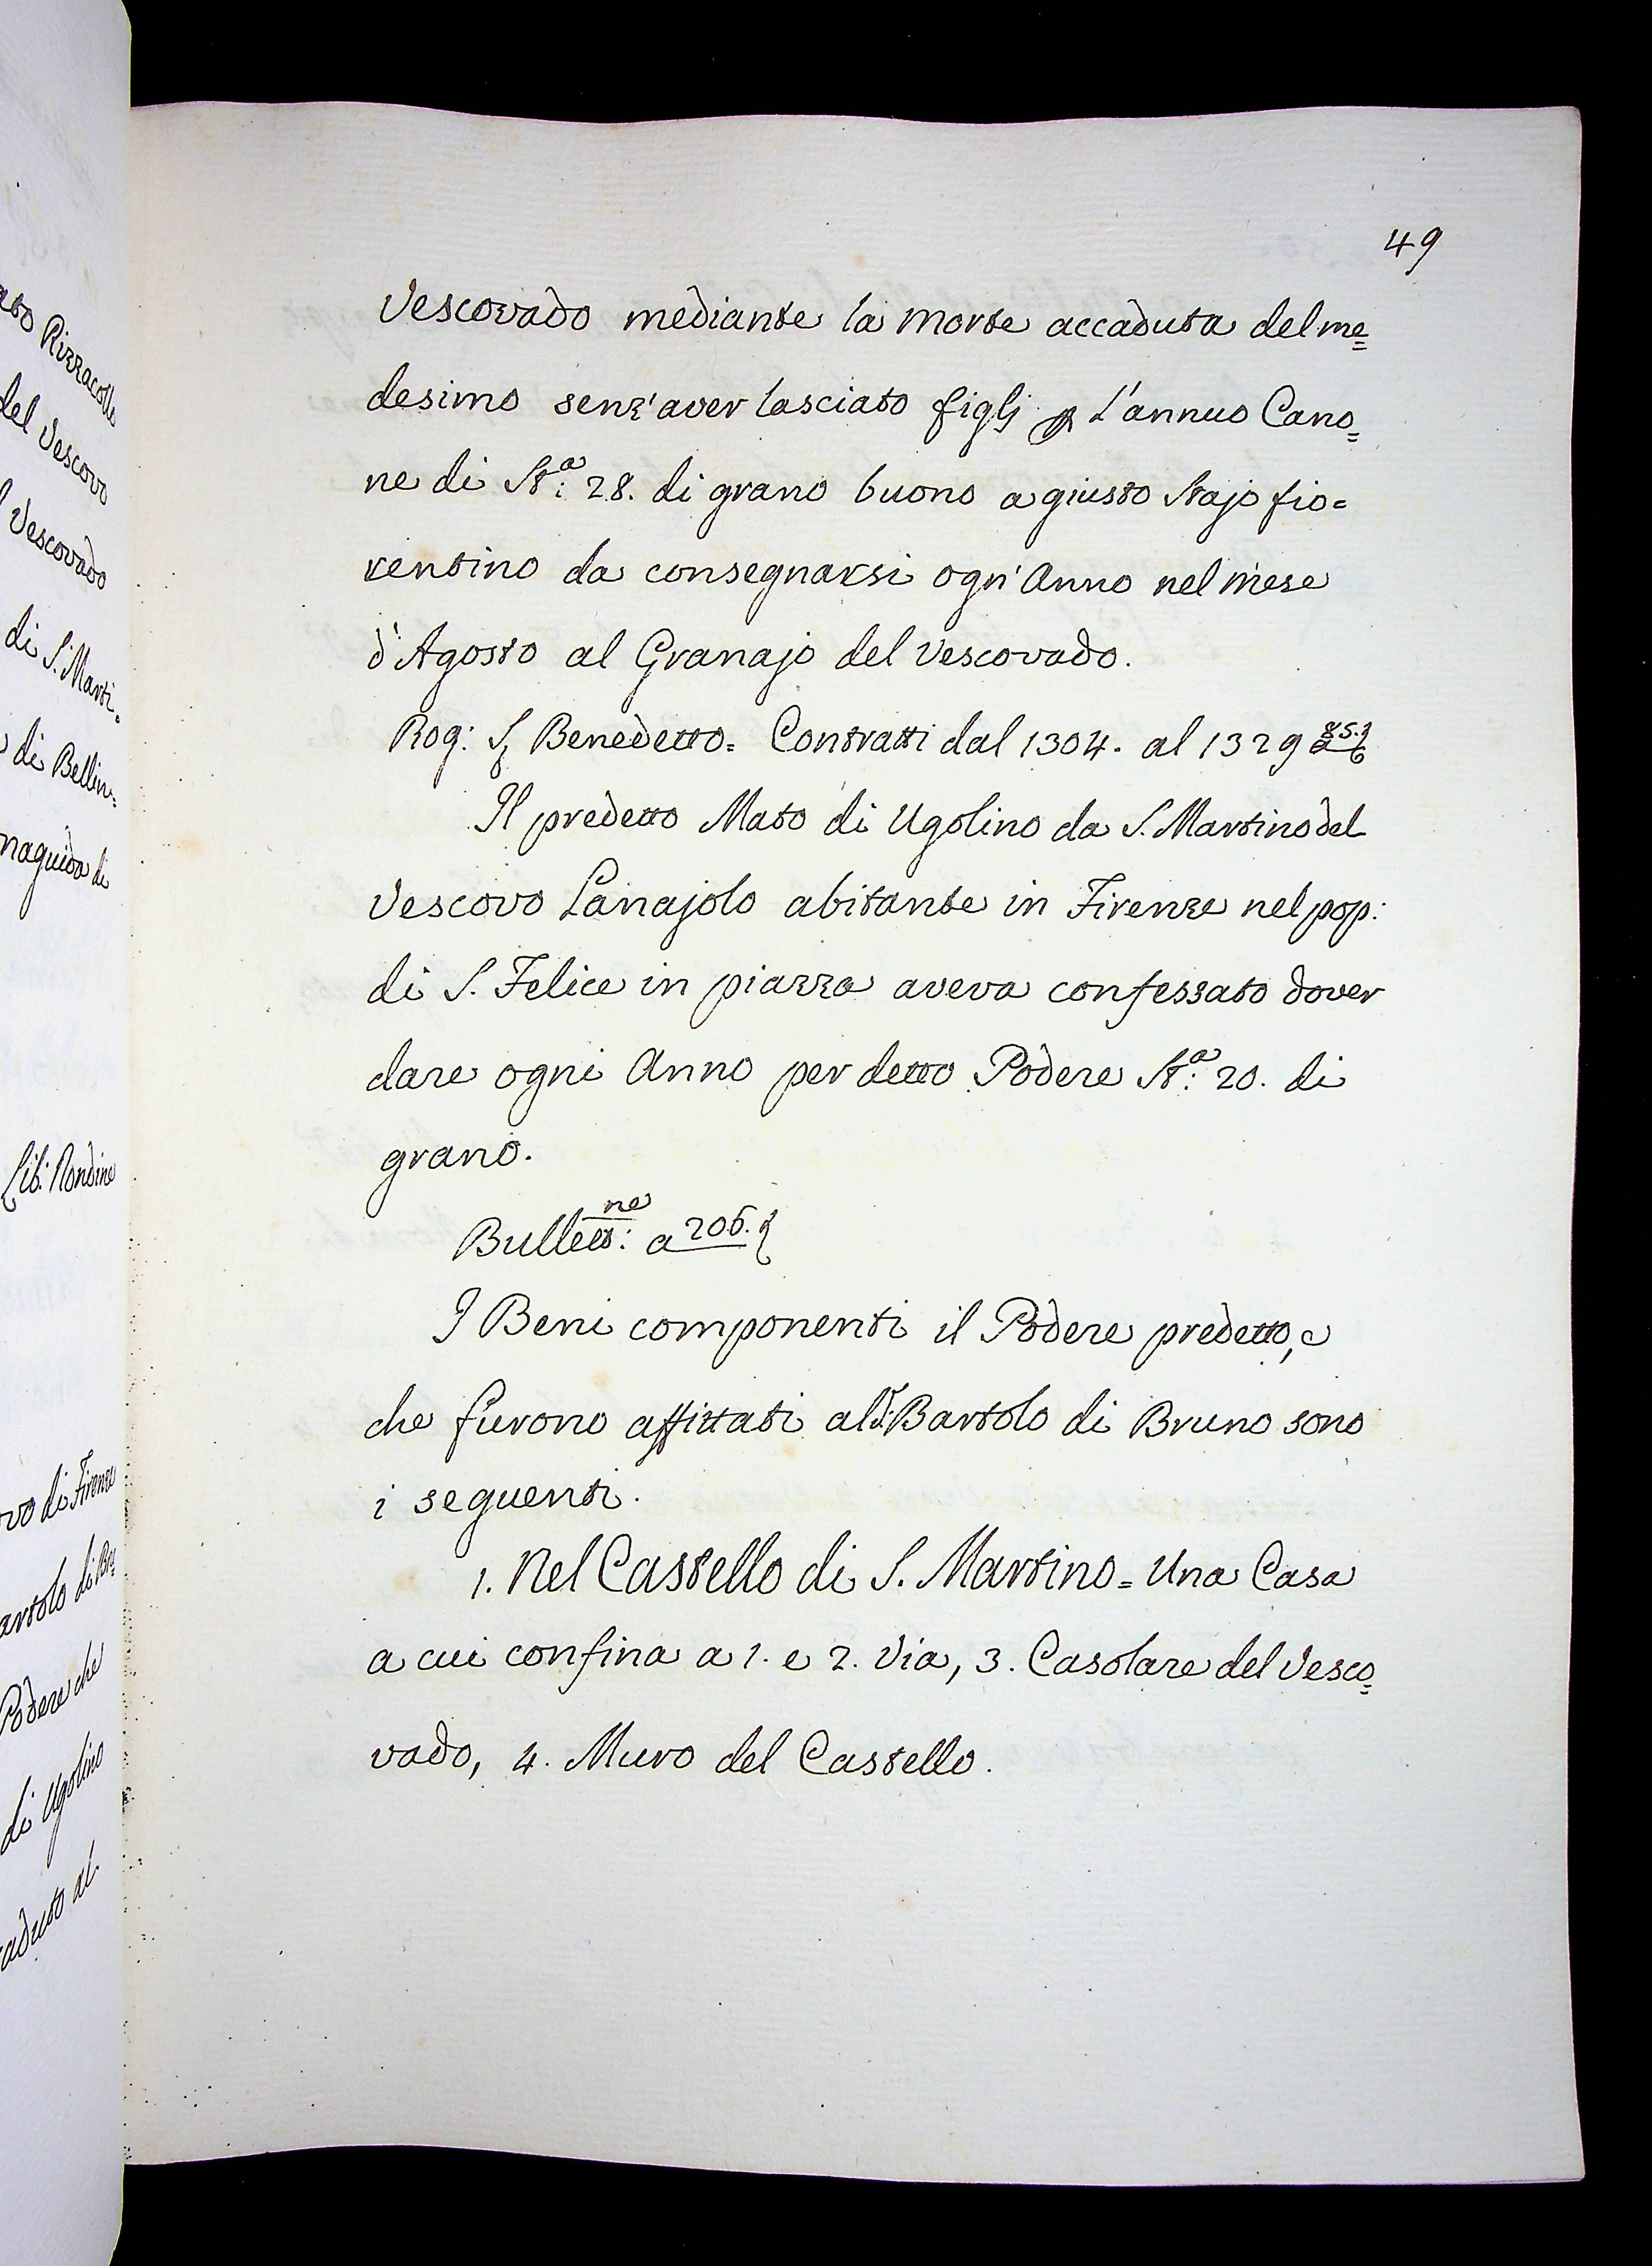 ato Rizzacolle
del Vescovo
Vescovado
di S. Marti=
di Bellin=
naguida di
Lib: Rondine
vo di Firenze
artolo di Br:
Podere che
di Ugolino
caduto al
49
Vescovado mediante la morte accaduta del me=
desimo senz'aver lasciato figlj p L'annuo Cano=
ne di St:a 28. di grano buono a giusto Stajo fio=
rentino da consegnarsi ogn'Anno nel mese
d'Agosto al Granajo del Vescovado.
Rog: S Benedetto= Contratti dal 1304. al 1329
Il predetto Mato di Ugolino da S. Martino del
Vescovo Lanajolo abitante in Firenze nel pop:
di S. Felice in piazza aveva confessato dover
dare ogni Anno per detto Podere St:a 20. di
grano.
Bullett:ne a 206.
I Beni componenti il Podere predetto, e
che furono affittati al d: Bartolo di Bruno sono
i seguenti.
1. Nel Castello di S. Martino= Una Casa
a cui confina a 1. e 2. Via, 3. Casolare del Vesco=
vado, 4. Muro del Castello.